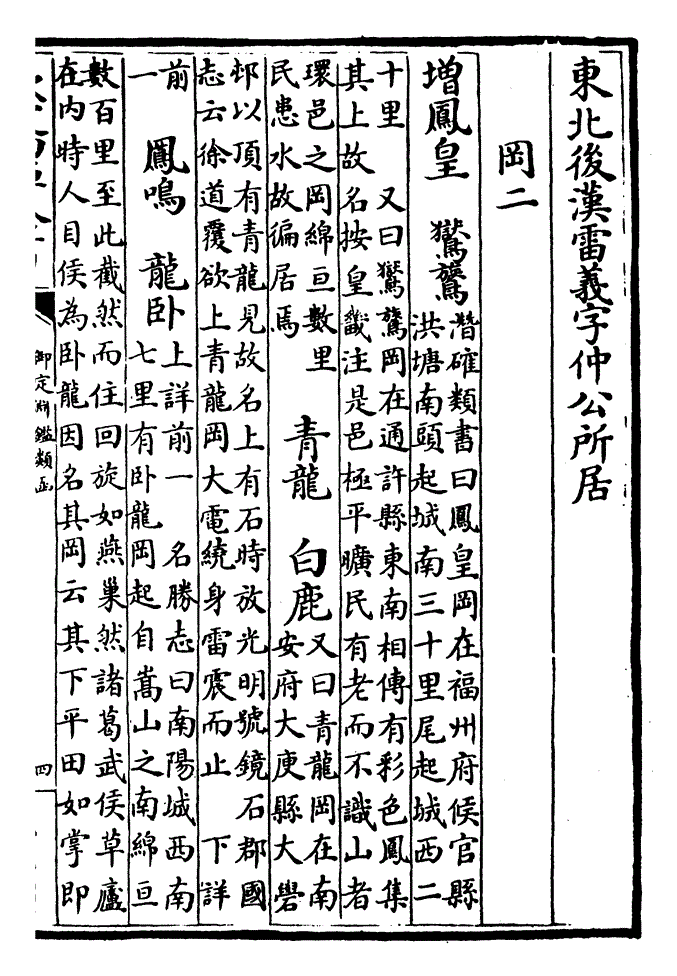 東北後漢雷義字仲公所居
岡二
增鳳皇　鸑鷟　潛確類書曰鳳皇岡在福州府侯官縣
洪塘南頭起城南三十里尾起城西二
十里　又曰鸑鷟岡在通許縣東南相傳有彩色鳳集
其上故名按皇畿注是邑極平曠民有老而不識山者
環邑之岡綿亘數里
民患水故徧居焉
青龍　白鹿　又曰青龍岡在南
安府大庾縣大礐
邨以頂有青龍見故名上有石時放光明號鏡石郡國
志云徐道覆欲上青龍岡大電繞身雷震而止　下詳
前
一
鳳鳴　龍卧　上詳前一　名勝志曰南陽城西南
七里有卧龍岡起自嵩山之南綿亘
數百里至此截然而住回旋如燕巢然諸葛武侯草廬
在内時人目侯為卧龍因名其岡云其下平田如掌即
御定淵鑑類函
四